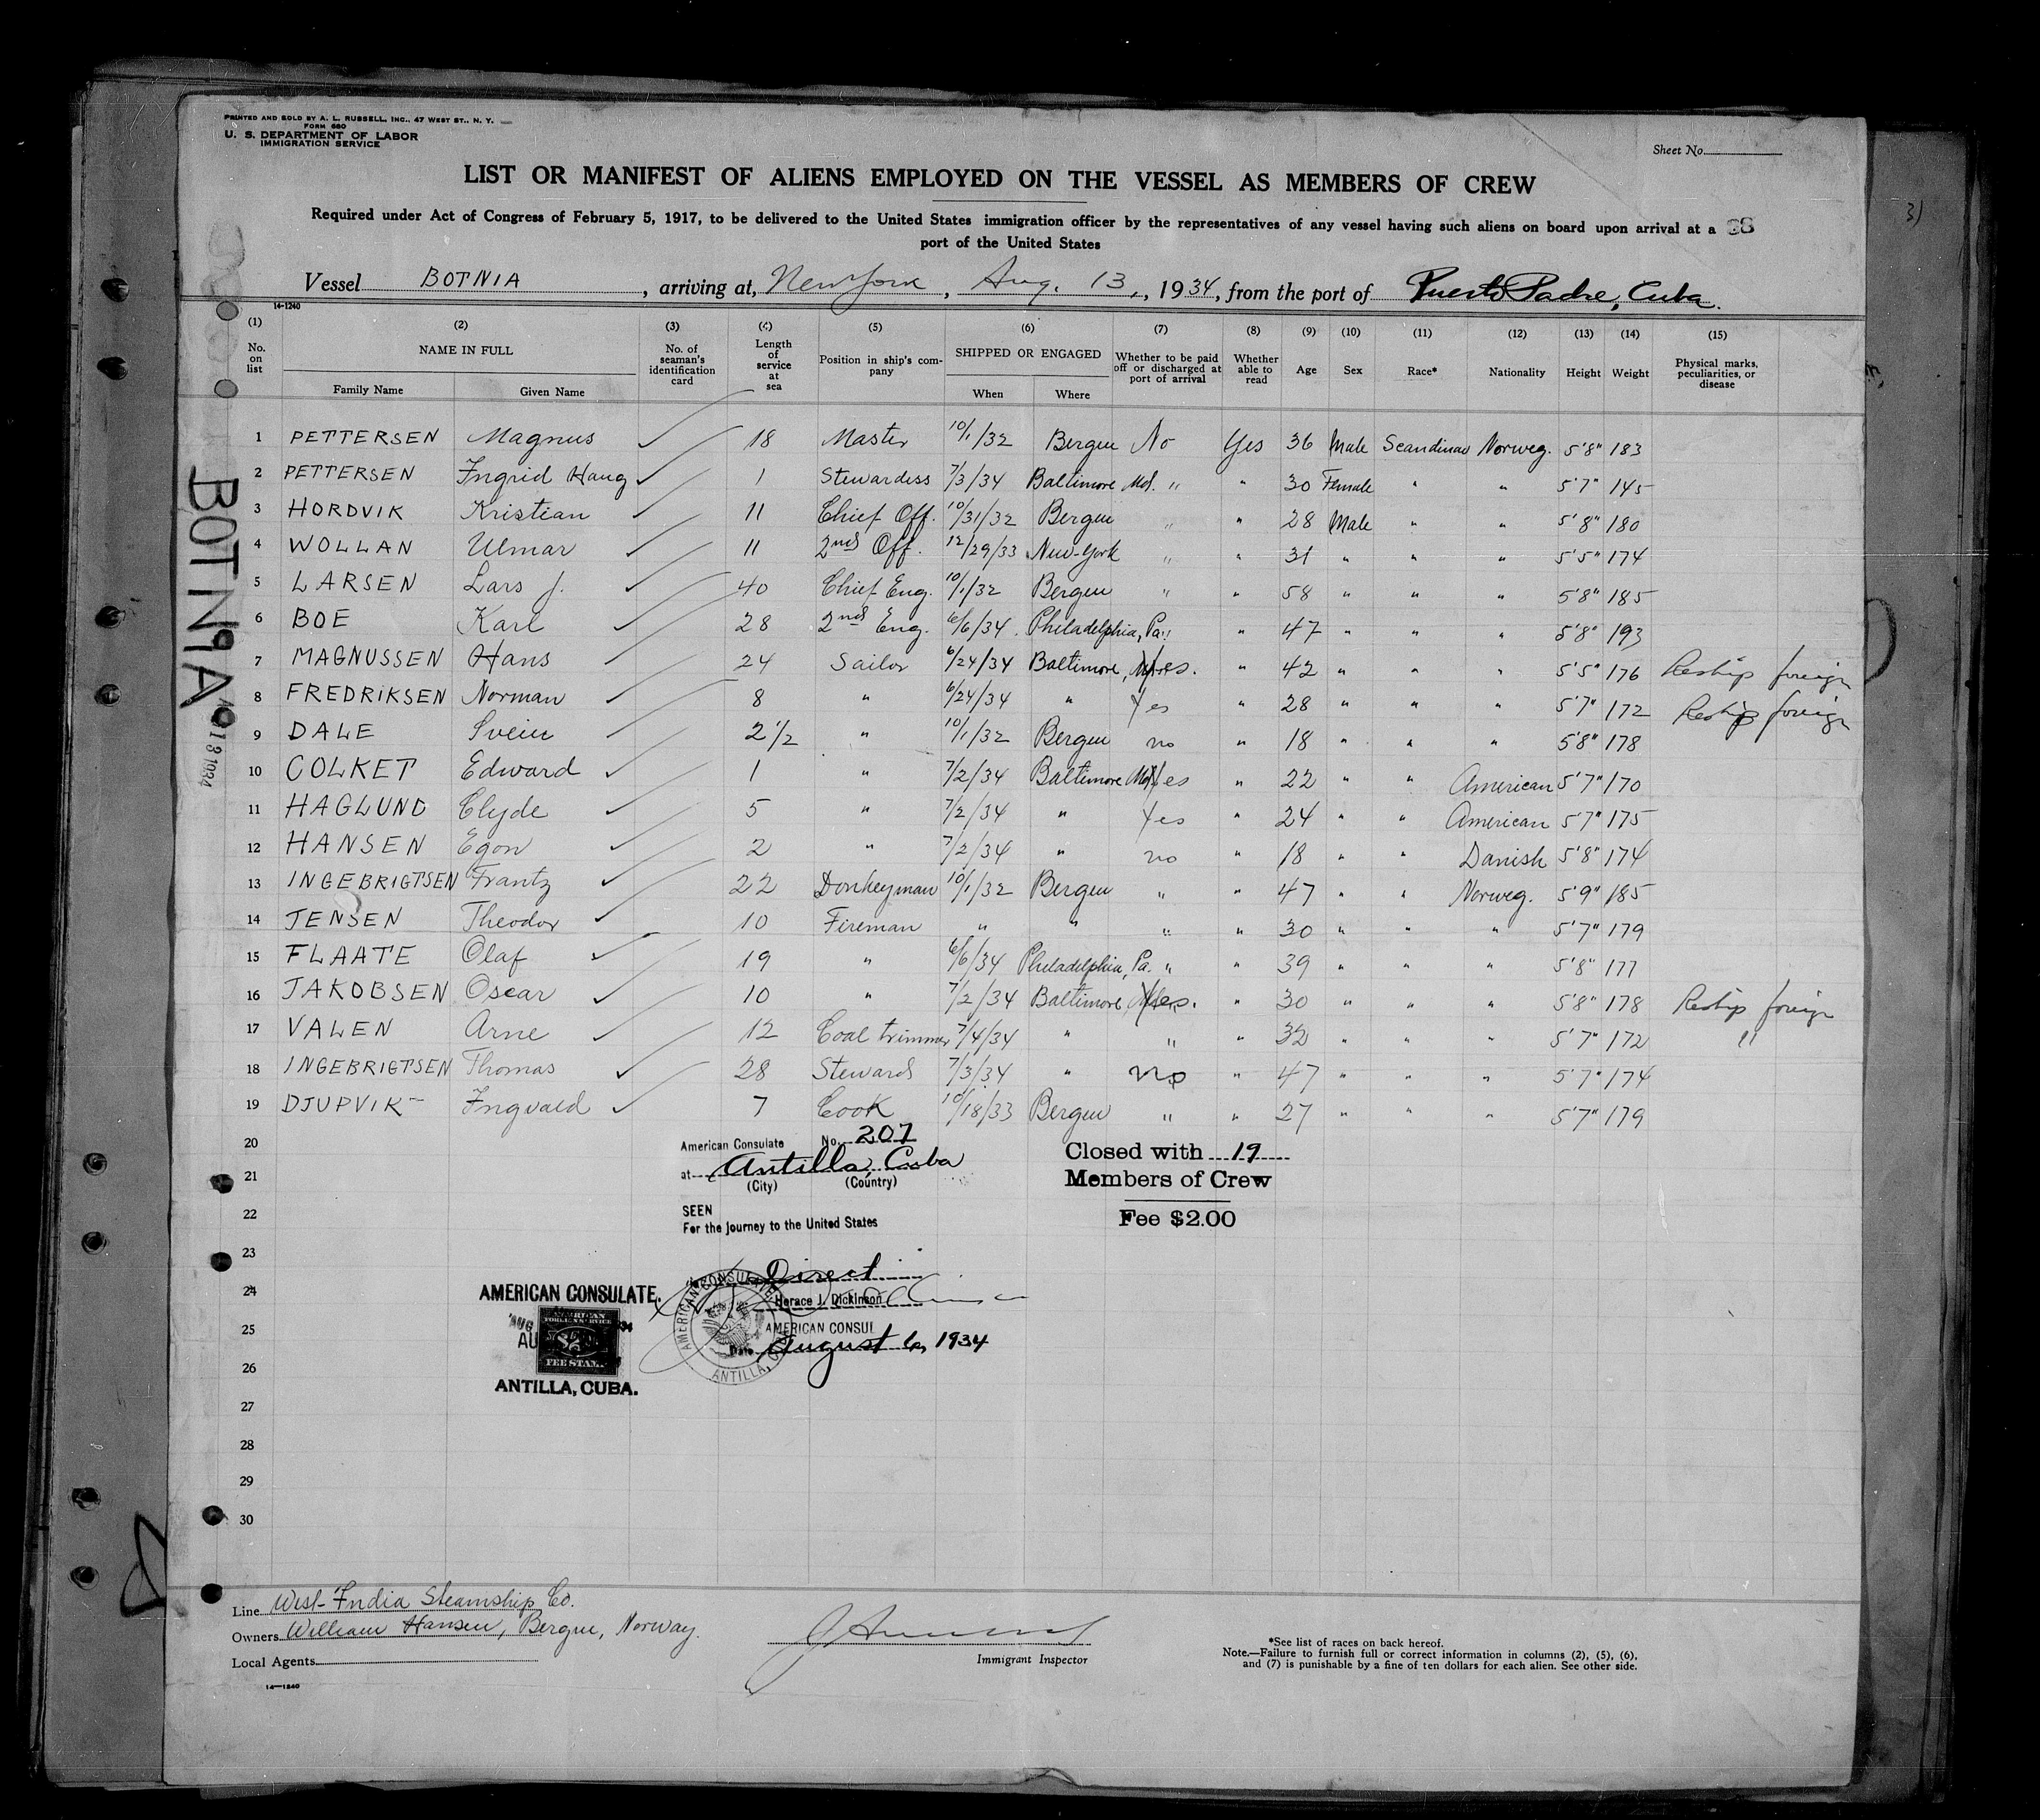 PRINTED AND SOLD BY A. L. RUSSELL, INC., 47 WEST ST., N. Y.
FORM 680
U. S. DEPARTMENT OF LABOR
IMMIGRATION SERVICE
Sheet No.
LIST OR MANIFEST OF ALIENS EMPLOYED ON THE VESSEL AS MEMBERS OF CREW
Required under Act of Congress of February 5, 1917, to be delivered to the United States immigration officer by the representatives of any vessel having such aliens on board upon arrival at a
port of the United States
Vessel BOTNIA, arriving at, New York, Aug. 13, 1934, from the port of Puerto Padre, Cuba.
14-1240
(1) (2) (3) (4) (5) (6) (7) (8) (9) (10) (11) (12) (13) (14) (15)
No. on list NAME IN FULL No. of seaman's identification card Length of service at sea Position in ship's company SHIPPED OR ENGAGED Whether to be paid off or discharged at port of arrival Whether able to read Age Sex Race* Nationality Height Weight Physical marks, peculiarities, or disease
Family Name Given Name When Where
1 PETTERSEN Magnus 18 Master 10/1/32 Bergen No Yes 36 Male Scandinav Norweg. 5'8" 183
2 PETTERSEN Ingrid Haug 1 Stewardess 7/3/34 Baltimore Md. " " 30 Female " " 5'7" 145
3 HORDVIK Kristian 11 Chief Off. 10/31/32 Bergen " " 28 Male " " 5'8" 180
4 WOLLAN Ulmar 11 2nd Off. 12/29/33 New-York " " 31 " " " 5'5" 174
5 LARSEN Lars J. 40 Chief Eng. 10/1/32 Bergen " " 58 " " " 5'8" 185
6 BOE Karl 28 2nd Eng. 6/6/34 Philadelphia, Pa. " " 47 " " " 5'8" 193
7 MAGNUSSEN Hans 24 Sailor 6/24/34 Baltimore, Yes. " 42 " " " 5'5" 176 Reship foreign
8 FREDRIKSEN Norman 8 " 6/24/34 " Yes " 28 " " " 5'7" 172 Reship foreign
9 DALE Svein 2 1/2 " 10/1/32 Bergen no " 18 " " " 5'8" 178
10 COLKET Edward 1 " 7/2/34 Baltimore Md Yes " 22 " " American 5'7" 170
11 HAGLUND Clyde 5 " 7/2/34 " Yes " 24 " " American 5'7" 175
12 HANSEN Egon 2 " 7/2/34 " no " 18 " " Danish 5'8" 174
13 INGEBRIGTSEN Frantz 22 Donkeyman 10/1/32 Bergen " " 47 " " Norweg. 5'9" 185
14 JENSEN Theodor 10 Fireman " " " " 30 " " " 5'7" 179
15 FLAATE Olaf 19 " 6/6/34 Philadelphia, Pa. " " 39 " " " 5'8" 177
16 JAKOBSEN Oscar 10 " 7/2/34 Baltimore Yes. " 30 " " " 5'8" 178 Reship foreign
17 VALEN Arne 12 Coal trimmer 7/4/34 " " " 32 " " " 5'7" 172 "
18 INGEBRIGTSEN Thomas 28 Steward 7/3/34 " no " 47 " " " 5'7" 174
19 DJUPVIK Ingvald 7 Cook 10/18/33 Bergen " " 27 " " " 5'7" 179
20
21
22
23
24
25
26
27
28
29
30
American Consulate No. 207
at Antilla, Cuba
(City) (Country)
SEEN
For the journey to the United States
Direct
Horace J. Dickinson
AMERICAN CONSUL
Date August 6, 1934
Closed with 19
Members of Crew
Fee $2.00
AMERICAN CONSULATE.
AUG
FEE STAMP
ANTILLA, CUBA.
AMERICAN CONSULATE
ANTILLA, CUBA
BOTNIA
Line West-India Steamship Co.
Owners William Hansen, Bergen, Norway.
Local Agents
Immigrant Inspector
*See list of races on back hereof.
Note.—Failure to furnish full or correct information in columns (2), (5), (6),
and (7) is punishable by a fine of ten dollars for each alien. See other side.
14—1240